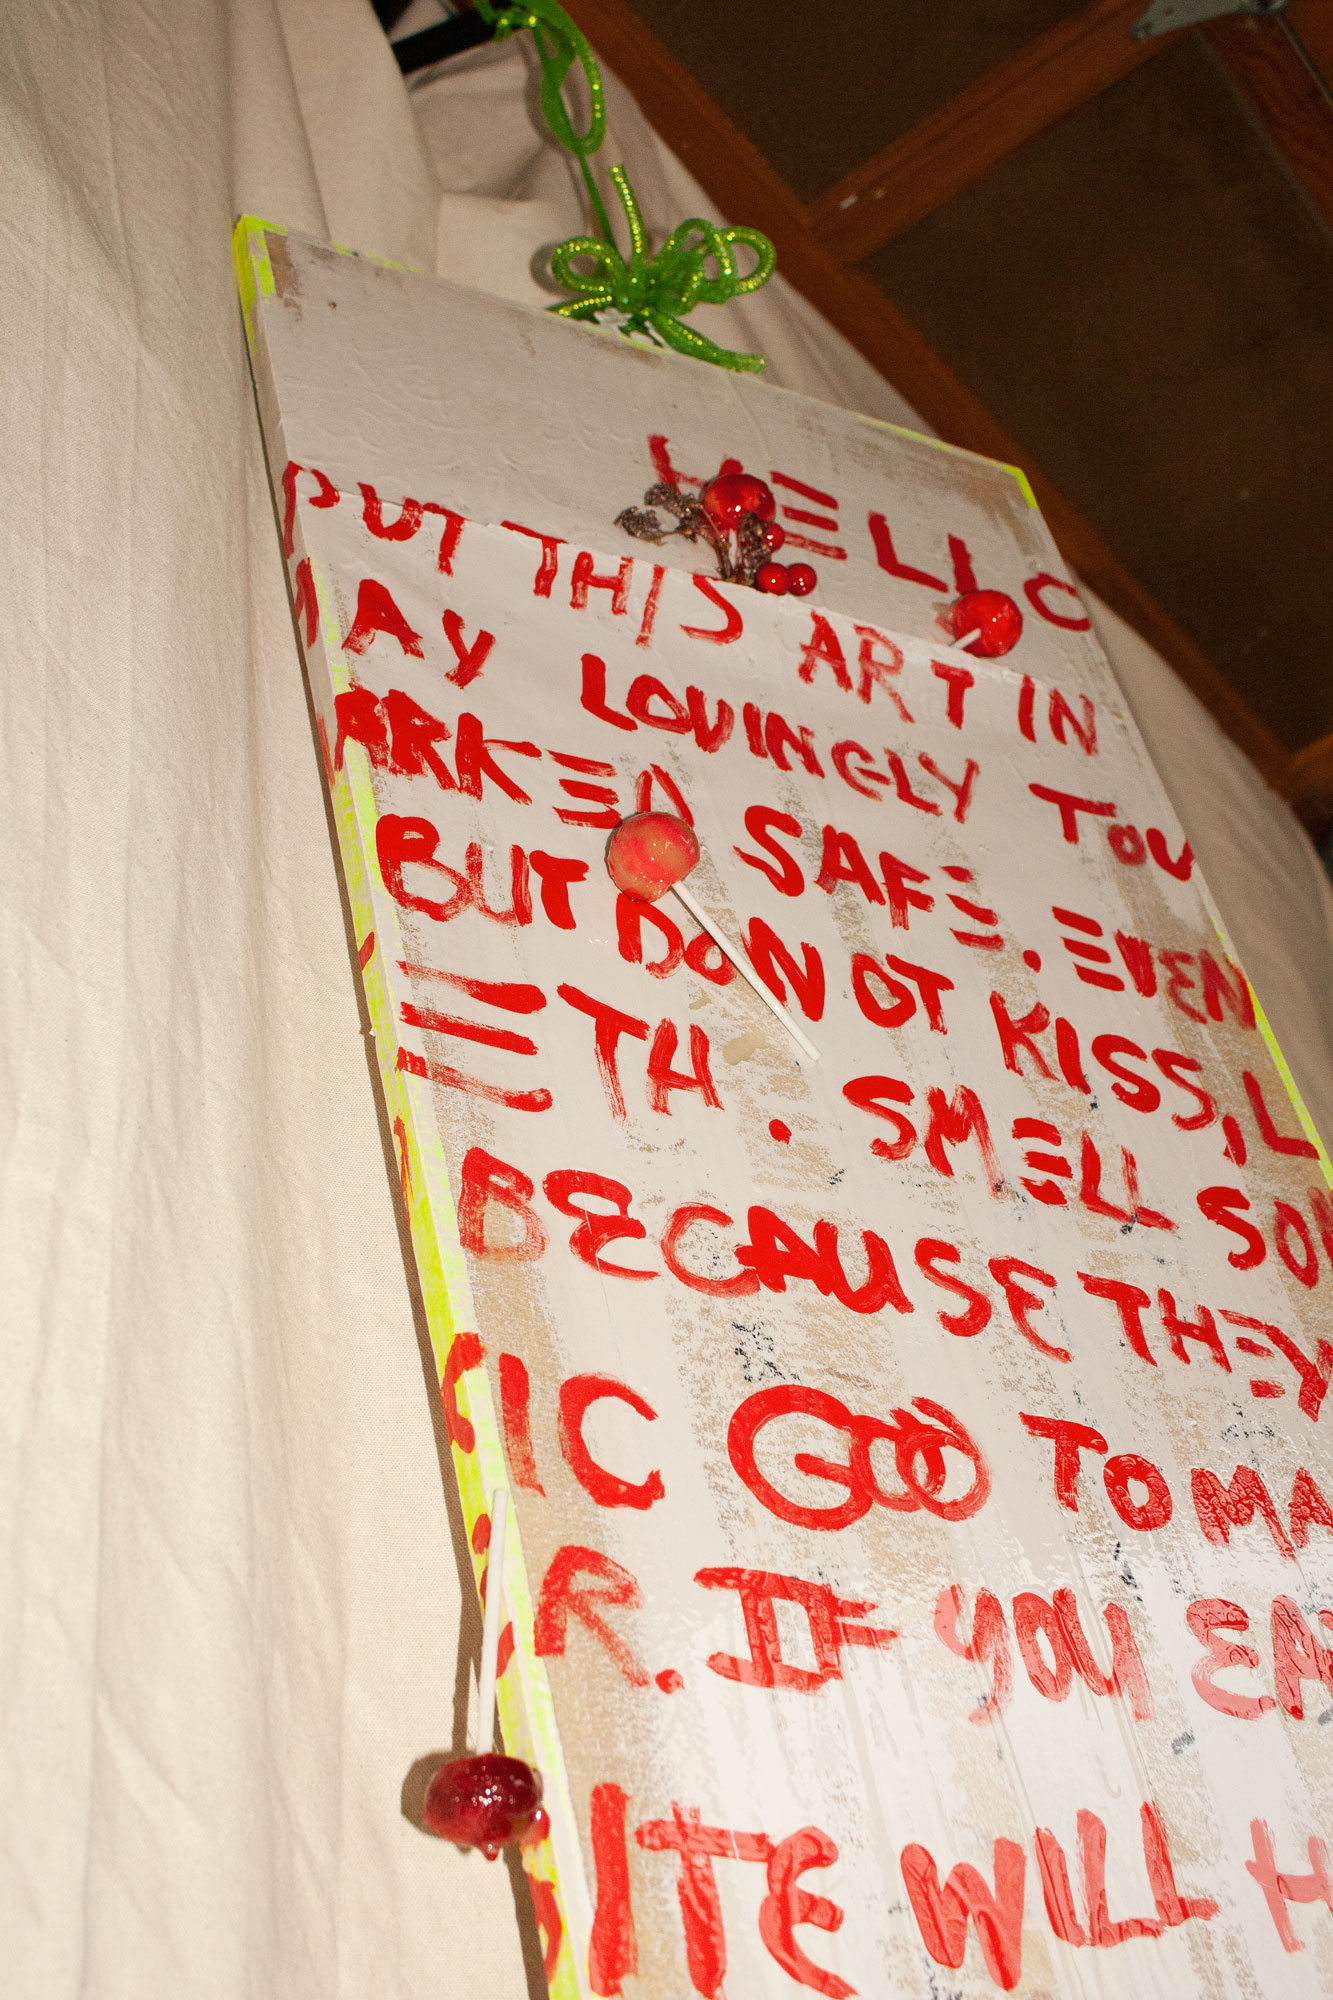 HELLO
PUT THIS ART IN
MAY LOVINGLY TOU
ARKED SAFE. EVEN
BUT DO NOT KISS, L
ETH. SMELL SOM
BECAUSE THEY
XIC GOO TO MA
R. IF YOU EA
BITE WILL H